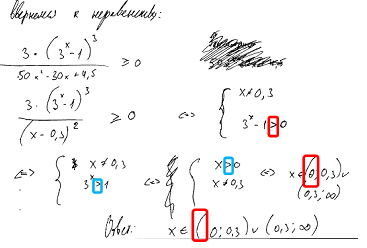 Вернемся к неравенству:
3 · (3^x - 1)^3 / (50x² - 30x + 4,5) ≥ 0
3 · (3^x - 1)^3 / (x - 0,3)² ≥ 0 ⇔ { x ≠ 0,3
3^x - 1 > 0
⇔ { x ≠ 0,3 ⇔ { x > 0 ⇔ x ∈ (0; 0,3) ∪
3^x > 1 x ≠ 0,3 (0,3; ∞)
Ответ: x ∈ (0; 0,3) ∪ (0,3; ∞)